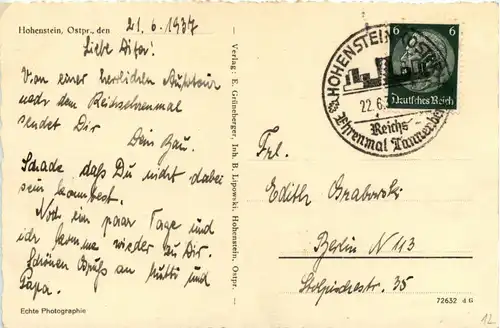 Hohenstein, Ostpr., den 21.6.1937
Liebe
Von einer herrlichen Autotour
nach dem Reichsehrenmal
sendet Dir
Dein
Schade, daß Du nicht dabei
sein konntest.
Noch ein paar Tage und
ich komme wieder zu Dir.
Schönen Gruß an Mutti und
Papa.
Echte Photographie
— Verlag: E. Grüneberger, Inh. B. Lipowski, Hohenstein, Ostpr. —
HOHENSTEIN
22.6.
Reichs
Ehrenmal Tannenberg
6 6
Deutsches Reich
Frl.
Edith Grabowski
Berlin N 113
Stolpischestr. 35
72632 d G
12